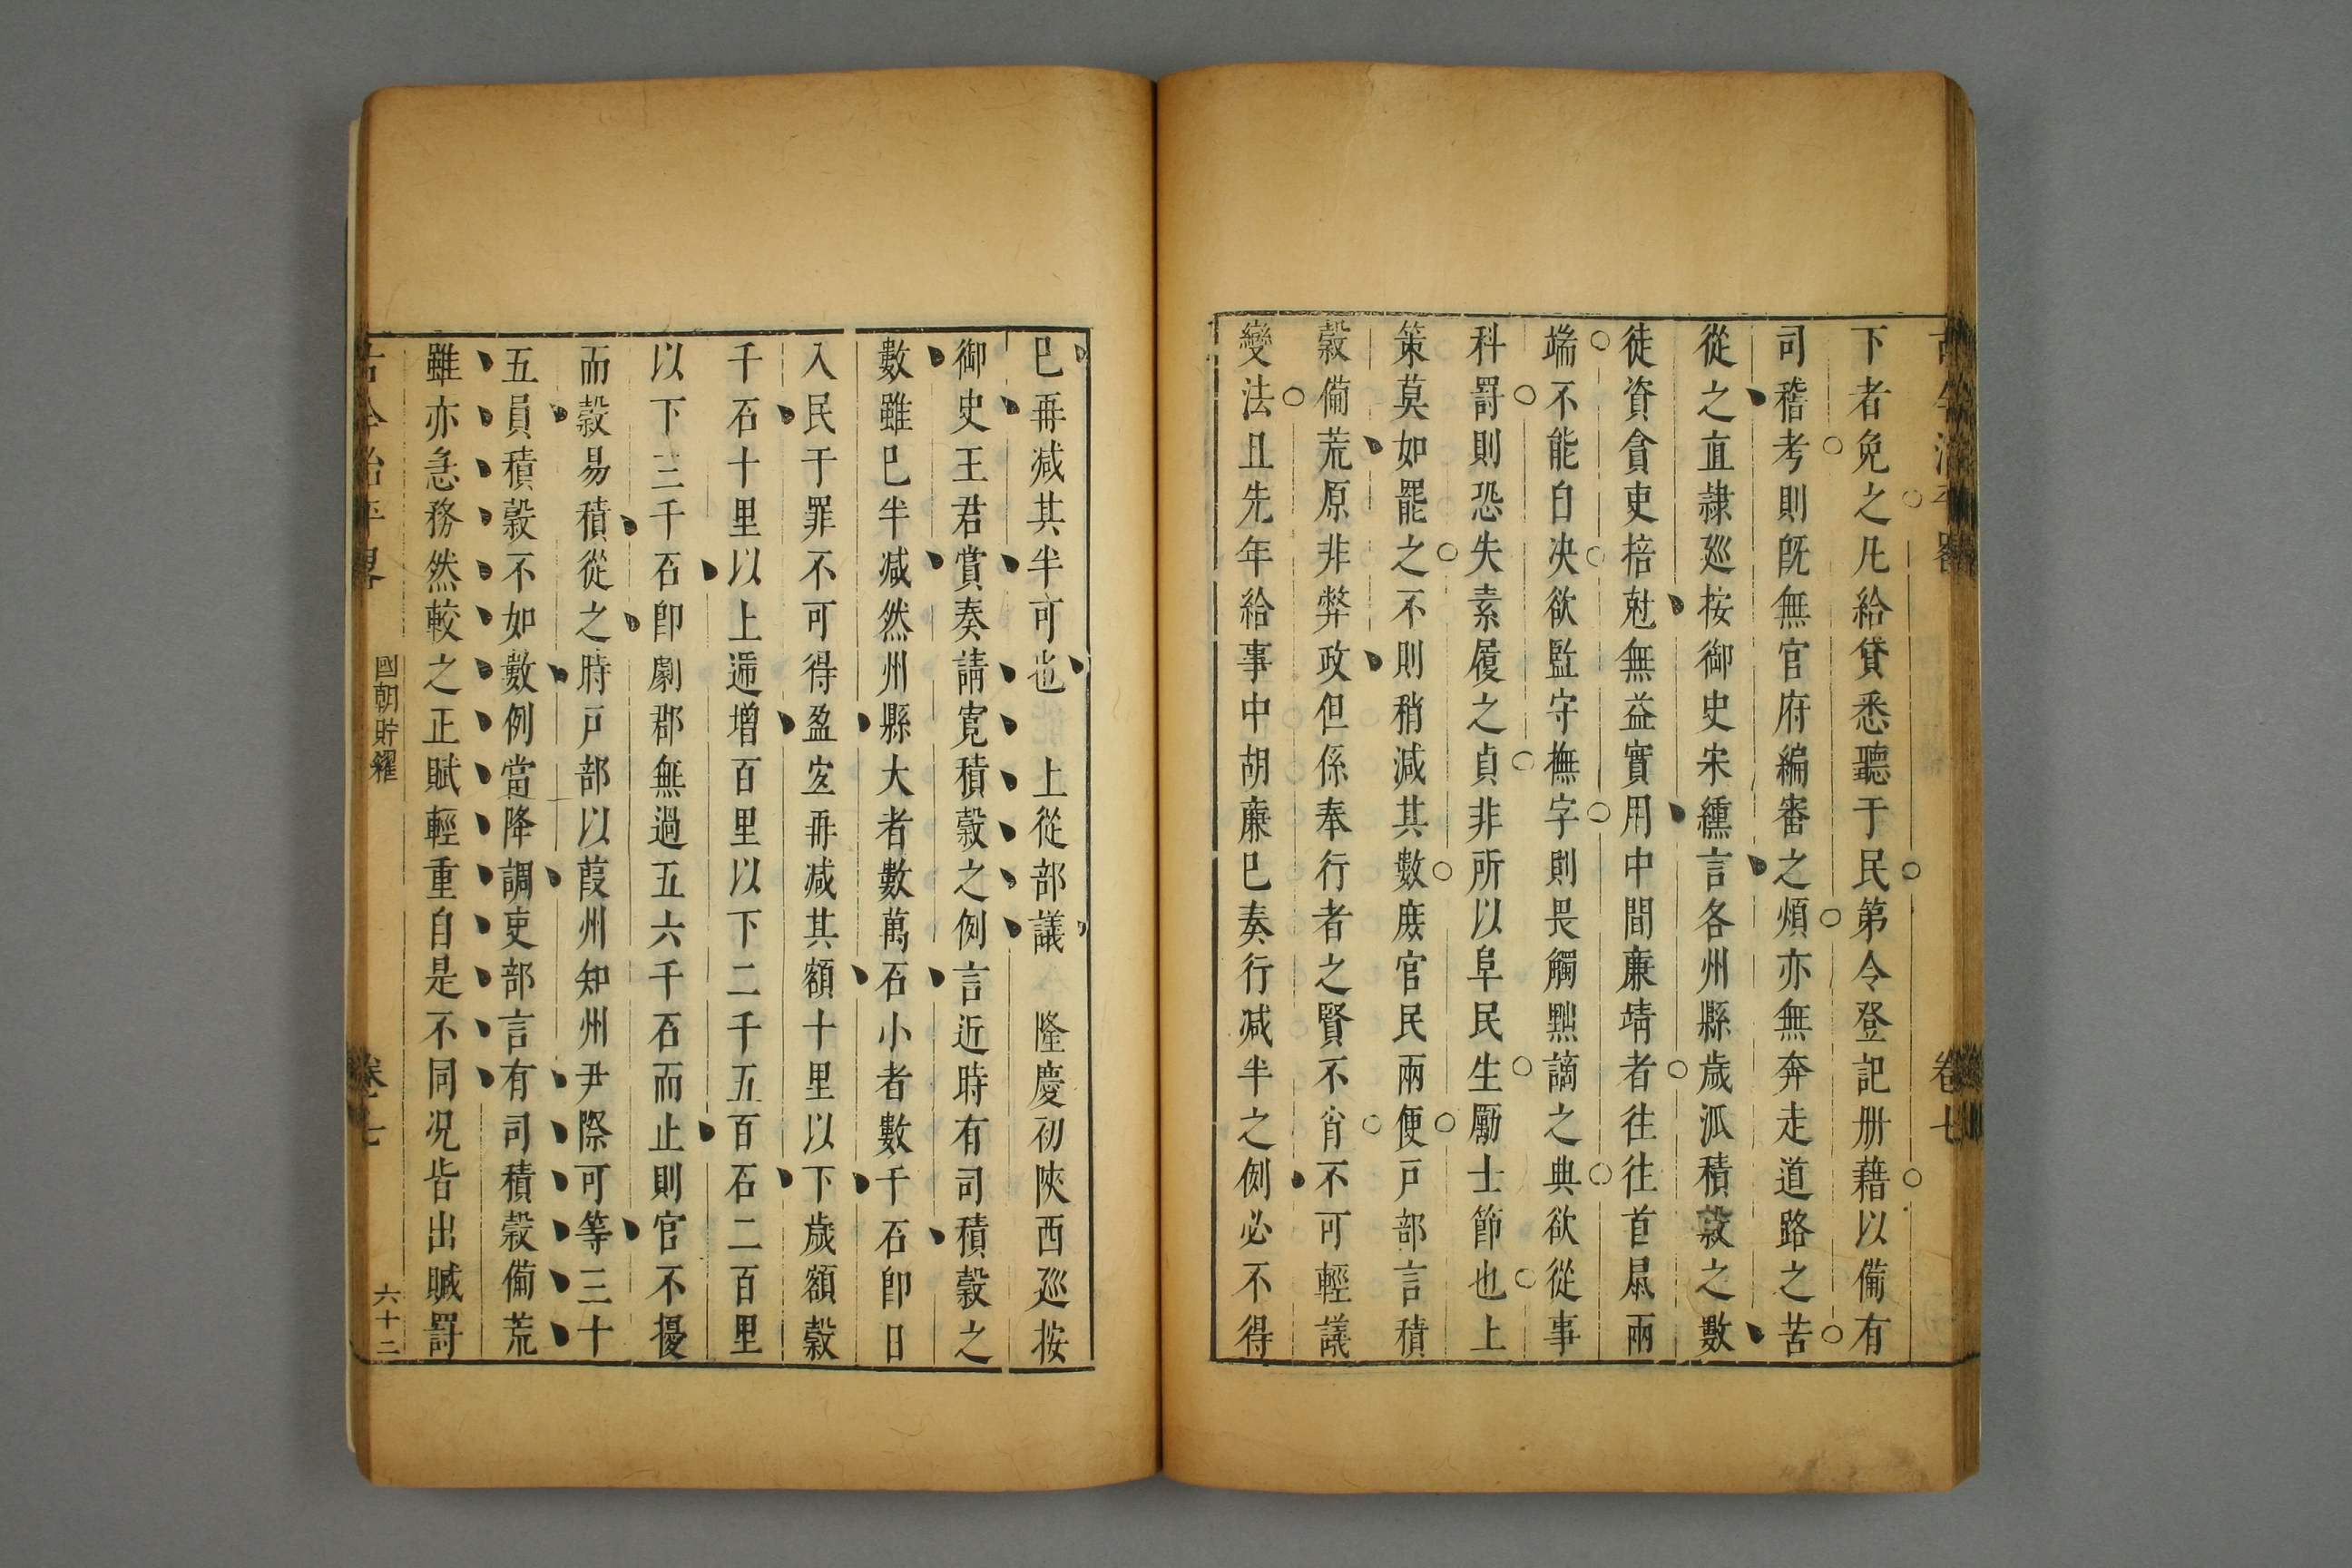 古今治平畧 卷七
下者免之凡給貸悉聽于民第令登記册藉以備有
司稽考則旣無官府編審之煩亦無奔走道路之苦
從之直隷廵按御史宋纁言各州縣歲派積穀之數
徒資貪吏掊尅無益實用中間廉靖者徃徃首鼠兩
端不能自决欲監守撫字則畏觸黜謫之典欲從事
科罰則恐失素履之貞非所以阜民生勵士節也上
策莫如罷之不則稍減其數庻官民兩便戸部言積
穀備荒原非弊政但係奉行者之賢不肖不可輕議
變法且先年給事中胡㢘巳奏行减半之例必不得
巳再减其半可也 上從部議 隆慶初陜西廵按
御史王君賞奏請寛積穀之例言近時有司積穀之
數雖巳半减然州縣大者數萬石小者數千石卽日
入民于罪不可得盈宜再减其額十里以下歲額穀
千石十里以上遞增百里以下二千五百石二百里
以下三千石卽劇郡無過五六千石而止則官不擾
而穀易積從之時戸部以葭州知州尹際可等三十
五員積穀不如數例當降調吏部言有司積穀備荒
雖亦急務然較之正賦輕重自是不同况皆出贓罰
古今治平畧 國朝貯糴 卷七 六十三